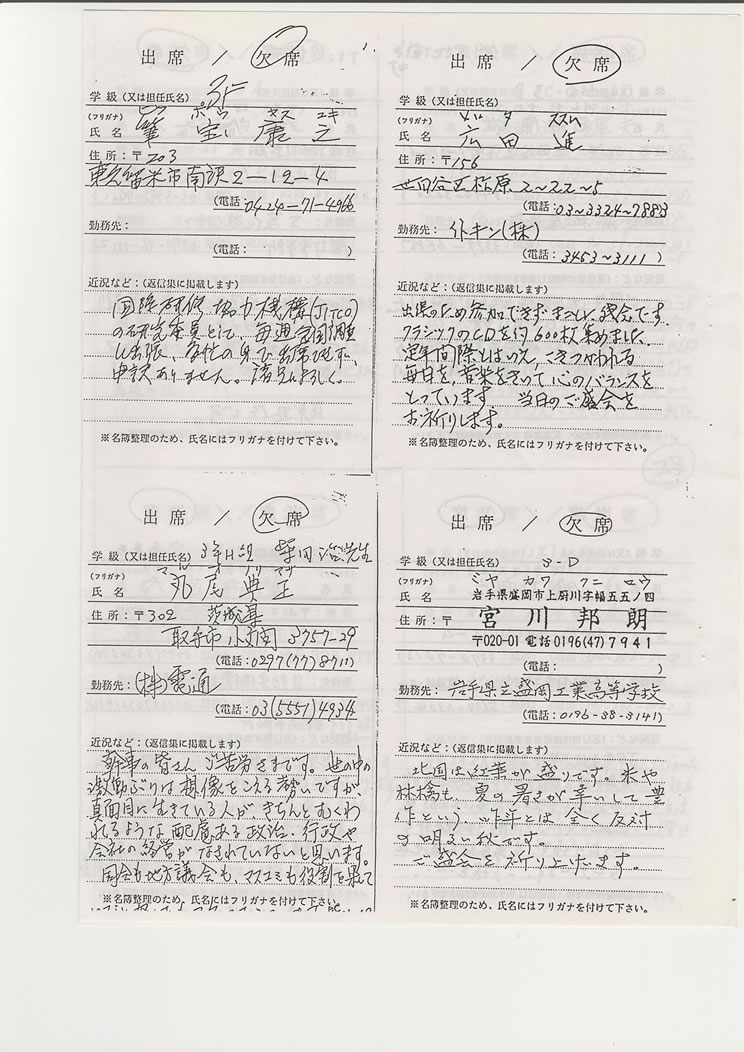 出席 / 欠席
学級（又は担任氏名） 3F
（フリガナ） ポウ ヤス ユキ
氏名 宝 康之
住所：〒203
東久留米市南沢2－12－4
（電話：0424－71－4966
勤務先：
（電話： ）
近況など：（返信集に掲載します）
国際研修協力機構(JITCO)
の研究委員として、毎週全国調査
に出張、
申訳ありません。諸兄によろしく。
※名簿整理のため、氏名にはフリガナを付けて下さい。
出席 / 欠席
学級（又は担任氏名）
（フリガナ） ヒロタ ススム
氏名 広田 進
住所：〒156
世田谷区松原 2～22～5
（電話：03～3324～7883
勤務先：イトキン(株)
（電話： 3453～3111 ）
近況など：（返信集に掲載します）
出張のため参加できずまことに残念です。
クラシックのCDを約600枚集めました。
定年間際とはいえ、こきつかわれる
毎日を、音楽をきいて心のバランスを
とっています。 当日のご盛会を
お祈りします。
※名簿整理のため、氏名にはフリガナを付けて下さい。
出席 / 欠席
学級（又は担任氏名） 3年H組 柴田治先生
（フリガナ） マル オ ノリ マサ
氏名 丸尾典
住所：〒302 茨城県
取手市 小文間 3757-29
（電話：0297(77)8711）
勤務先：(株)電通
（電話：03(5551)4934
近況など：（返信集に掲載します）
幹事の皆さん ご苦労さまです。世の中の
激動ぶりは想像をこえる勢いですが、
真面目に生きている人が、きちんとむくわ
れるような配慮ある政治、行政や
会社の経営がなされていないと思います。
国会も地方議会も、マスコミも役割を果して
※名簿整理のため、氏名にはフリガナを付けて下さい。
出席 / 欠席
学級（又は担任氏名） 3-D
（フリガナ） ミヤ カワ クニ ロウ
氏名 岩手県盛岡市上厨川字幅五五ノ四
住所：〒 宮川邦朗
〒020-01 電話0196(47)7941
（電話： ）
勤務先：岩手県立盛岡工業高等学校
（電話：0196-38-3141）
近況など：（返信集に掲載します）
北国は紅葉が盛りです。米や
林檎も、夏の暑さが幸いして豊
作という、昨年とは全く反対
の明るい秋です。
ご盛会を祈り上げます。
※名簿整理のため、氏名にはフリガナを付けて下さい。